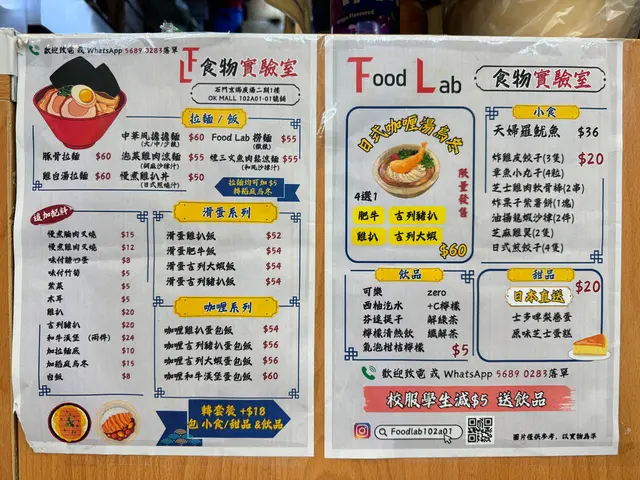 歡迎致電 或 WhatsApp 5689 0283落單
FL 食物實驗室
石門京瑞廣場二期1樓
OK MALL 102A01-01號舖
拉麵 / 飯
中華風擔擔麵 $60 Food Lab 撈麵 $55
豚骨拉麵 $60 泡菜雞肉涼麵 $55
雞白湯拉麵 $60 慢煮雞扒丼 $50
(日式燒汁)
拉麵均可加$5
轉稻庭烏冬
追加配料
慢煮腩肉叉燒 $15
慢煮雞肉叉燒 $12
味付糖心蛋 $8
味付竹筍 $5
紫菜 $5
木耳 $5
雞扒 $20
吉列豬扒 $20
和牛漢堡 (兩件) $24
加拉麵底 $10
加稻庭烏冬 $15
白飯 $8
滑蛋系列
滑蛋雞扒飯 $52
滑蛋肥牛飯 $54
滑蛋吉列大蝦飯 $54
滑蛋吉列豬扒飯 $54
咖喱系列
咖喱雞扒蛋包飯 $54
咖喱吉列豬扒蛋包飯 $56
咖喱吉列大蝦蛋包飯 $56
咖喱和牛漢堡蛋包飯 $60
轉套餐 +$18
包 小食/甜品 &飲品
Food Lab 食物實驗室
日式咖喱湯烏冬
限量發售
4選1
肥牛 吉列豬扒
雞扒 吉列大蝦
$60
小食
天婦羅魷魚 $36
炸雞皮餃子(3隻) $20
章魚小丸子(4粒)
芝士雞肉軟骨棒(2串)
炸栗子紫薯餅(1塊)
油揚龍蝦沙律(2件)
芝麻雞翼(2隻)
日式煎餃子(4隻)
飲品
可樂 zero
西柚汽水 +C檸檬
芬達提子 解綠茶
檸檬清熱飲 纖解茶
氣泡柑桔檸檬 $5
甜品
日本直送 $20
士多啤梨卷蛋
原味芝士蛋糕
歡迎致電 或 WhatsApp 5689 0283落單
校服學生減$5 送飲品
Foodlab102a01
圖片僅供參考, 以實物為準